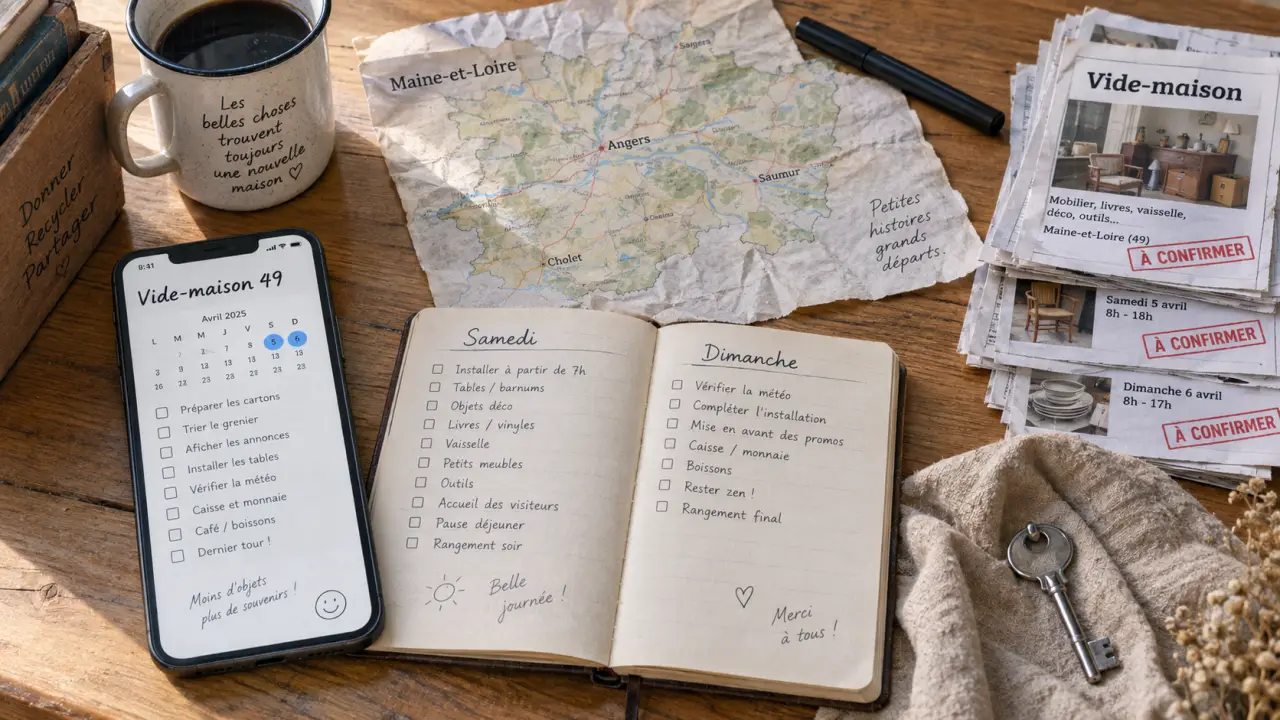 Les
belles choses
trouvent
toujours
une nouvelle
maison ♡
Donner
Recycler
Partager
♡
Maine-et-Loire
Angers
Saumur
Cholet
Petites
histoires
grands
départs.
Vide-maison
Mobilier, livres, vaisselle,
déco, outils...
Maine-et-Loire (49)
À CONFIRMER
Samedi 5 avril
8h - 18h
À CONFIRMER
Dimanche 6 avril
8h - 17h
À CONFIRMER
9:41
Vide-maison 49
Avril 2025
L M M J V S D
5 6
☐ Préparer les cartons
☐ Trier le grenier
☐ Afficher les annonces
☐ Installer les tables
☐ Vérifier la météo
☐ Caisse et monnaie
☐ Café / boissons
☐ Dernier tour !
Moins d'objets
plus de souvenirs !
Samedi
☐ Installer à partir de 7h
☐ Tables / barnums
☐ Objets déco
☐ Livres / vinyles
☐ Vaisselle
☐ Petits meubles
☐ Outils
☐ Accueil des visiteurs
☐ Pause déjeuner
☐ Rangement soir
Belle
journée !
Dimanche
☐ Vérifier la météo
☐ Compléter l'installation
☐ Mise en avant des promos
☐ Caisse / monnaie
☐ Boissons
☐ Rester zen !
☐ Rangement final
♡
Merci
à tous !